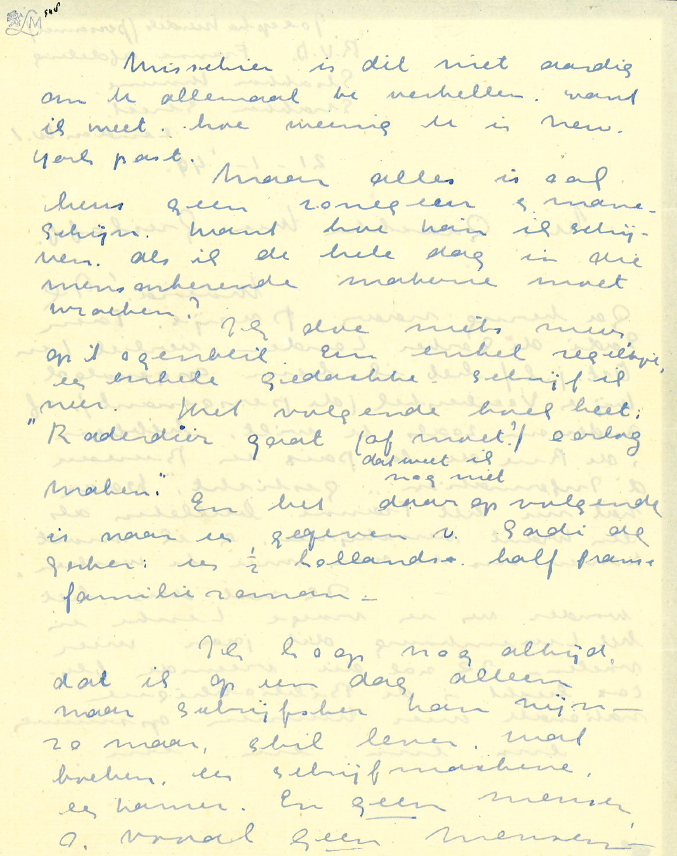 LM
Misschien is dit niet aardig
om U allemaal te vertellen. want
ik weet. hoe weinig U in New.
York past.
Maar alles is
geen zonneschijn en mane-
schijn. Want hoe kan ik schrij-
ven. als ik de hele dag in die
mensonterende makerne moet
werken?
Ik doe niets meer,
op 't ogenblik Een enkel regeltje,
een enkele gedachte. schrijf ik
neer. Het volgende boek heet:
"Raderdier gaat (of moet?) oorlog
dat weet ik
nog niet
maken." En het daarop volgende
is naar een gegeven v. Gadi de
een ½ hollandse. half franse
familie roman –
Ik hoop nog altijd,
dat ik op een dag, alleen
maar schrijfster kan zijn –
zo maar, stil leven, met
boeken, een schrijfmachine,
een kamer. En geen mensen,
o. vooral geen mensen –